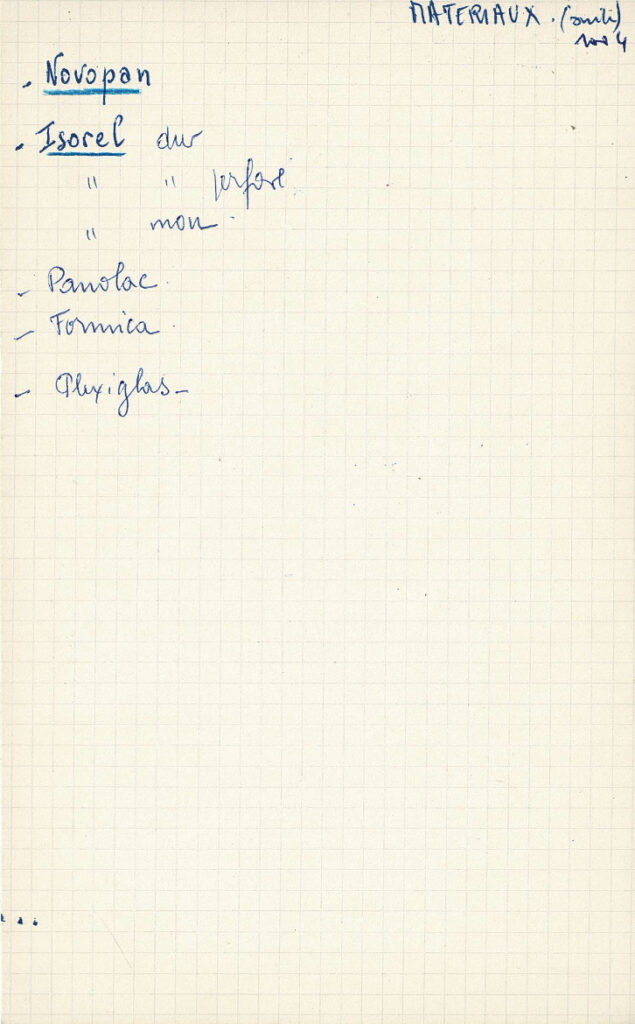 MATERIAUX. (suite)
4
- Novopan
- Isorel dur
" " perforé
" mou.
- Panolac.
- Formica.
- Plexiglas-
...